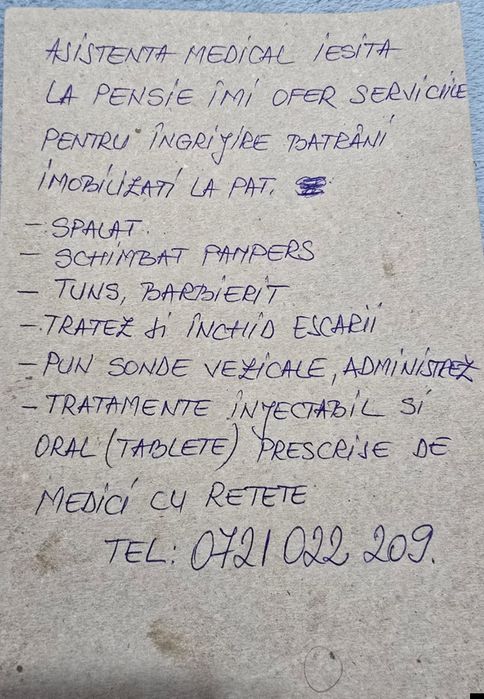 ASISTENTA MEDICAL IESITA
LA PENSIE ÎMI OFER SERVICIILE
PENTRU ÎNGRIJIRE BATRÂNI
IMOBILIZATI LA PAT.
- SPALAT.
- SCHIMBAT PAMPERS
- TUNS, BARBIERIT
- TRATEZ și ÎNCHID ESCARII
- PUN SONDE VEZICALE, ADMINISTREZ
- TRATAMENTE INJECTABIL SI
ORAL (TABLETE) PRESCRISE DE
MEDICI CU RETETE
TEL: 0721 022 209.